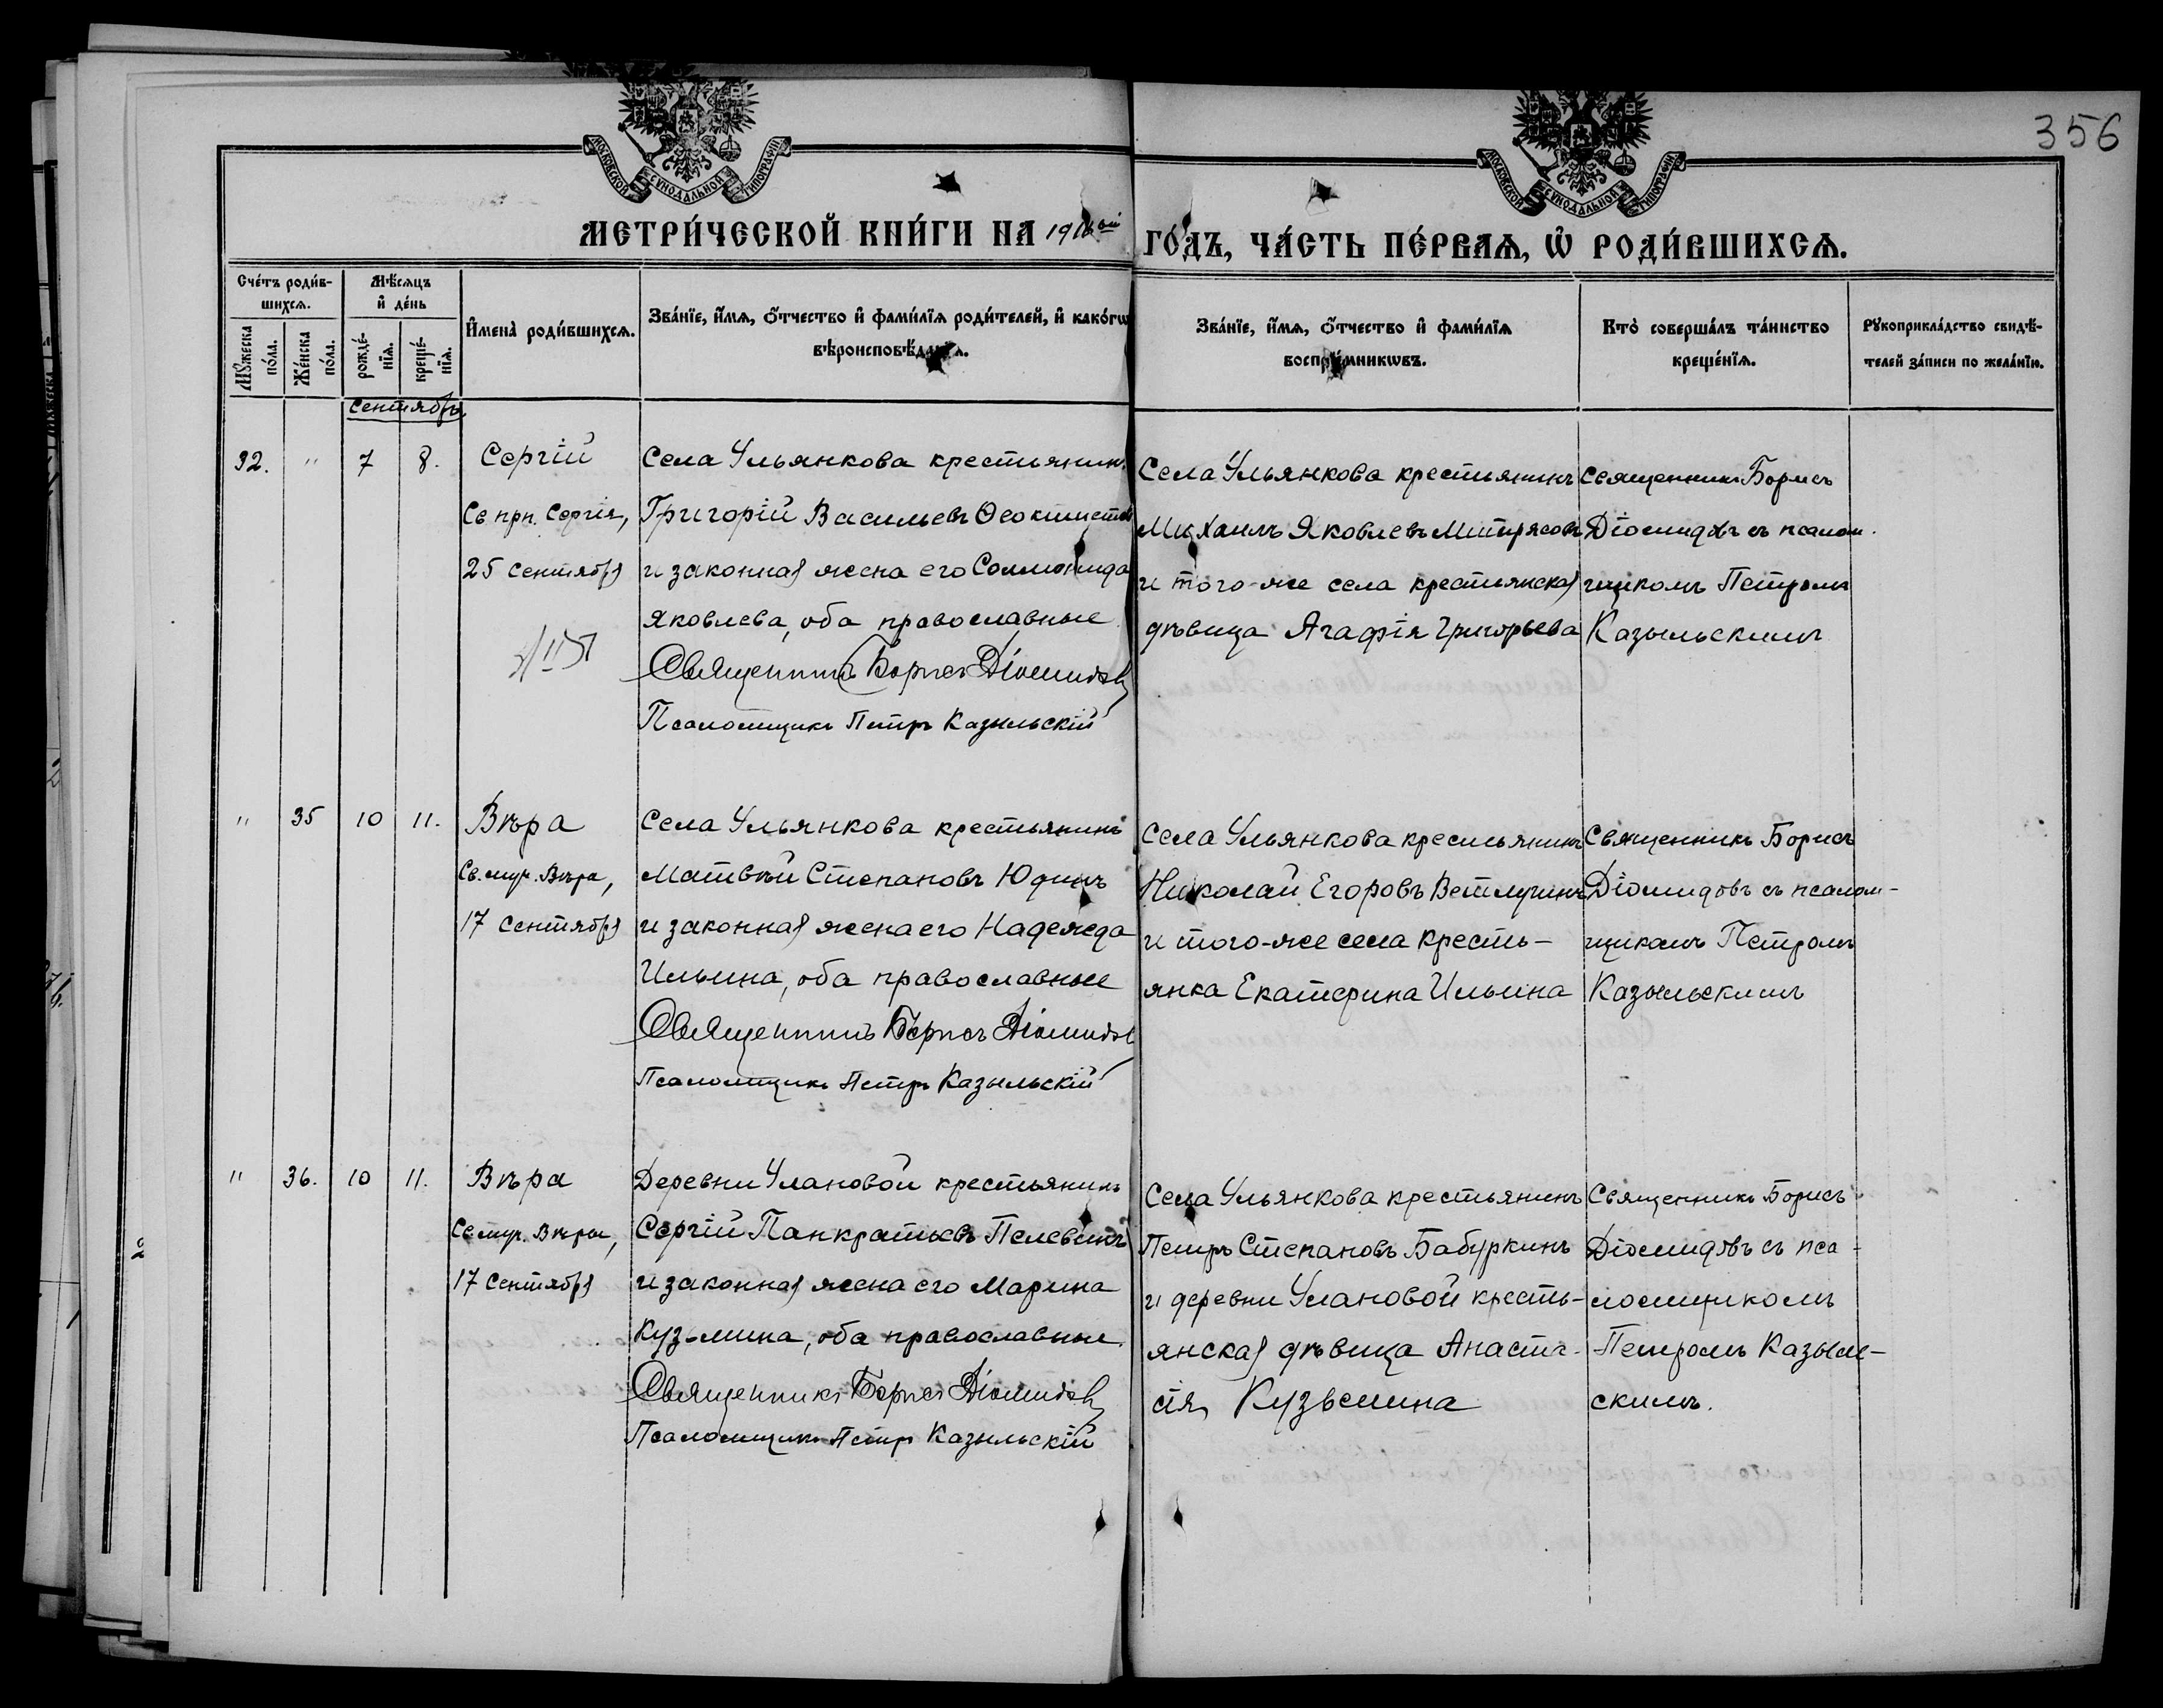 356
МОСКОВСКОЙ СѴНОДАЛЬНОЙ ТИПОГРАФІИ
МОСКОВСКОЙ СѴНОДАЛЬНОЙ ТИПОГРАФІИ
МЕТРИ́ЧЕСКОЙ КНИ́ГИ НА 1916ый ГО́ДЪ, ЧА́СТЬ ПЕ́РВАЯ, Ѡ РОДИ́ВШИХСЯ.
Сче́тъ роди́в-
шихся.
Мѣ́сяцъ
и҆ де́нь
Мꙋ́жеска
по́ла.
Же́нска
по́ла.
рожде́-
нїя.
креще́-
нїя.
И҆мена̀ роди́вшихся.
Зва́нїе, и҆́мя, ѻ҆́тчество и҆ фами́лїя роди́телей, и҆ како́гѡ
вѣроисповѣ́данїя.
Зва́нїе, и҆́мя, ѻ҆́тчество и҆ фами́лїя
воспрїе́мникѡвъ.
Кто̀ соверша́лъ та́инство
креще́нїя.
Рꙋкоприкла́дство свидѣ́-
телей за́писи по жела́нїю.
Сентябрь
32. " 7 8.
Сергій
Св. прп. Сергія,
25 сентября
Села Ульянкова крестьянинъ
Григорій Васильевъ Ѳеоктистовъ
и законная жена его Соломонида
Яковлева, оба православные
Священникъ Борисъ Діомидовъ
Псаломщикъ Петръ Казыльскій
Села Ульянкова крестьянинъ
Михаилъ Яковлевъ Митрясовъ
и того-же села крестьянская
дѣвица Агафія Григорьева
Священникъ Борисъ
Діомидовъ съ псалом-
щикомъ Петромъ
Казыльскимъ
" 35 10 11.
Вѣра
Св. муч. Вѣра,
17 сентября
Села Ульянкова крестьянинъ
Матвѣй Степановъ Юдинъ
и законная жена его Надежда
Ильина, оба православные
Священникъ Борисъ Діомидовъ
Псаломщикъ Петръ Казыльскій
Села Ульянкова крестьянинъ
Николай Егоровъ Ветлугинъ
и того-же села кресть-
янка Екатерина Ильина
Священникъ Борисъ
Діомидовъ съ псалом-
щикомъ Петромъ
Казыльскимъ
" 36. 10 11.
Вѣра
Св. муч. Вѣры,
17 сентября
Деревни Улановой крестьянинъ
Сергій Панкратьевъ Пелевинъ
и законная жена его Марина
Кузьмина, оба православные.
Священникъ Борисъ Діомидовъ
Псаломщикъ Петръ Казыльскій
Села Ульянкова крестьянинъ
Петръ Степановъ Бабуркинъ
и деревни Улановой кресть-
янская дѣвица Анаста-
сія Кузьмина
Священникъ Борисъ
Діомидовъ съ пса-
ломщикомъ
Петромъ Казыль-
скимъ.